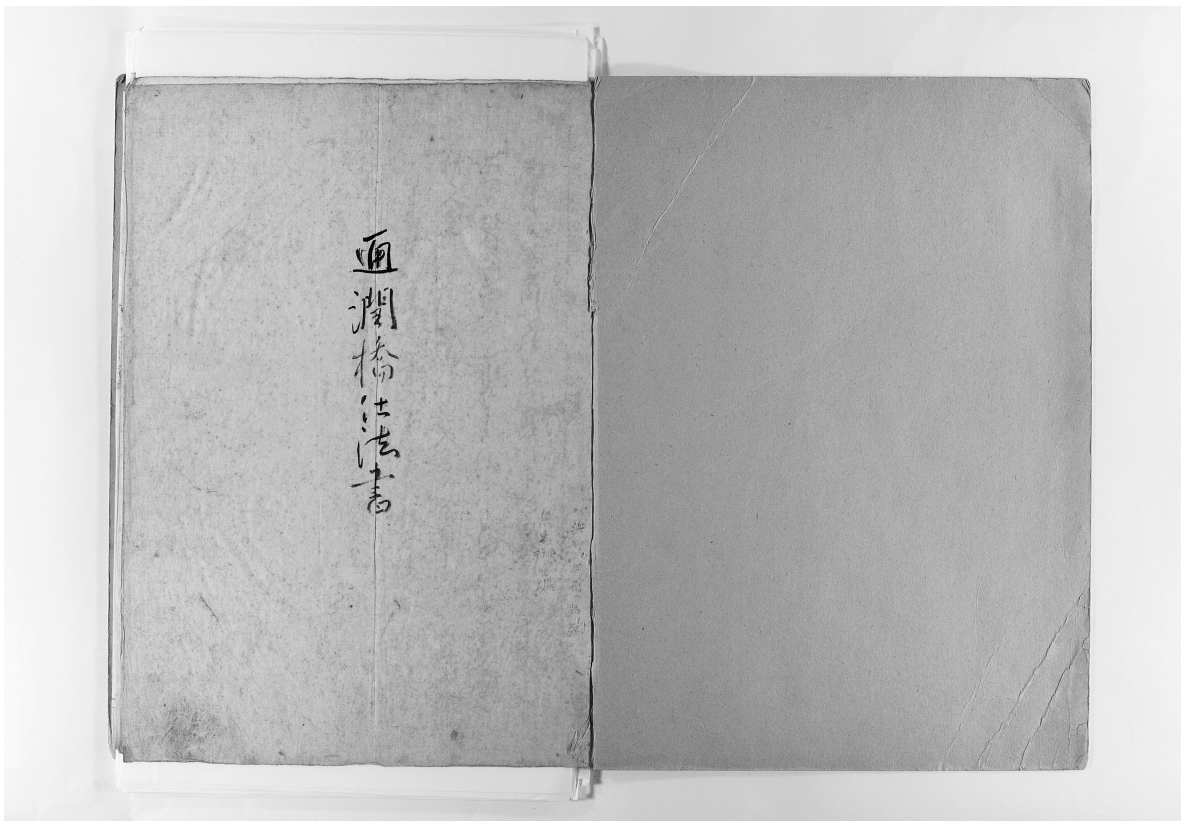 通潤橋仕法書